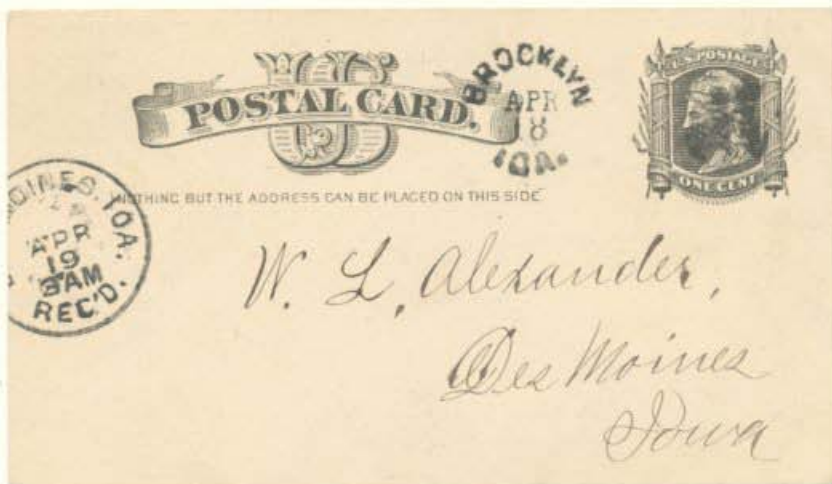 US
POSTAL CARD.
BROOKLYN
APR
18
IOA.
U.S. POSTAGE
ONE CENT
NOTHING BUT THE ADDRESS CAN BE PLACED ON THIS SIDE
MOINES, IOA.
APR
19
3AM
REC'D.
W. L. Alexander,
Des Moines
Iowa